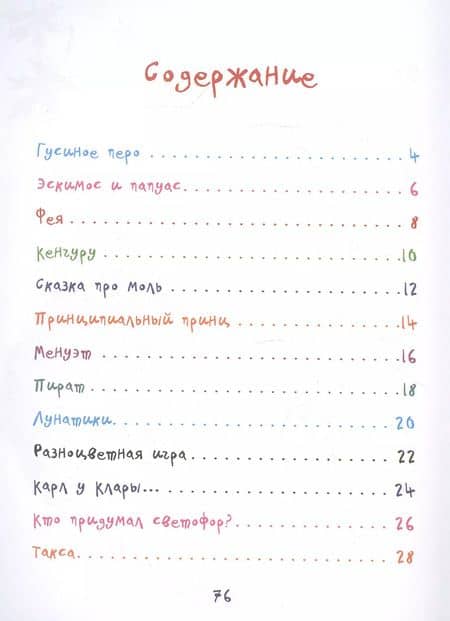 Содержание
Гусиное перо . . . . . . . . . . . . . . . . . . . . . . 4
Эскимос и папуас. . . . . . . . . . . . . . . . . . . 6
Фея . . . . . . . . . . . . . . . . . . . . . . . . . . . . . 8
Кенгуру . . . . . . . . . . . . . . . . . . . . . . . . . .10
Сказка про моль . . . . . . . . . . . . . . . . . . . .12
Принципиальный принц . . . . . . . . . . . . . .14
Менуэт . . . . . . . . . . . . . . . . . . . . . . . . . . .16
Пират . . . . . . . . . . . . . . . . . . . . . . . . . . . .18
Лунатики. . . . . . . . . . . . . . . . . . . . . . . . . 20
Разноцветная игра. . . . . . . . . . . . . . . . . . 22
Карл у Клары... . . . . . . . . . . . . . . . . . . . . 24
Кто придумал светофор?. . . . . . . . . . . . . . 26
Такса. . . . . . . . . . . . . . . . . . . . . . . . . . . . 28
76